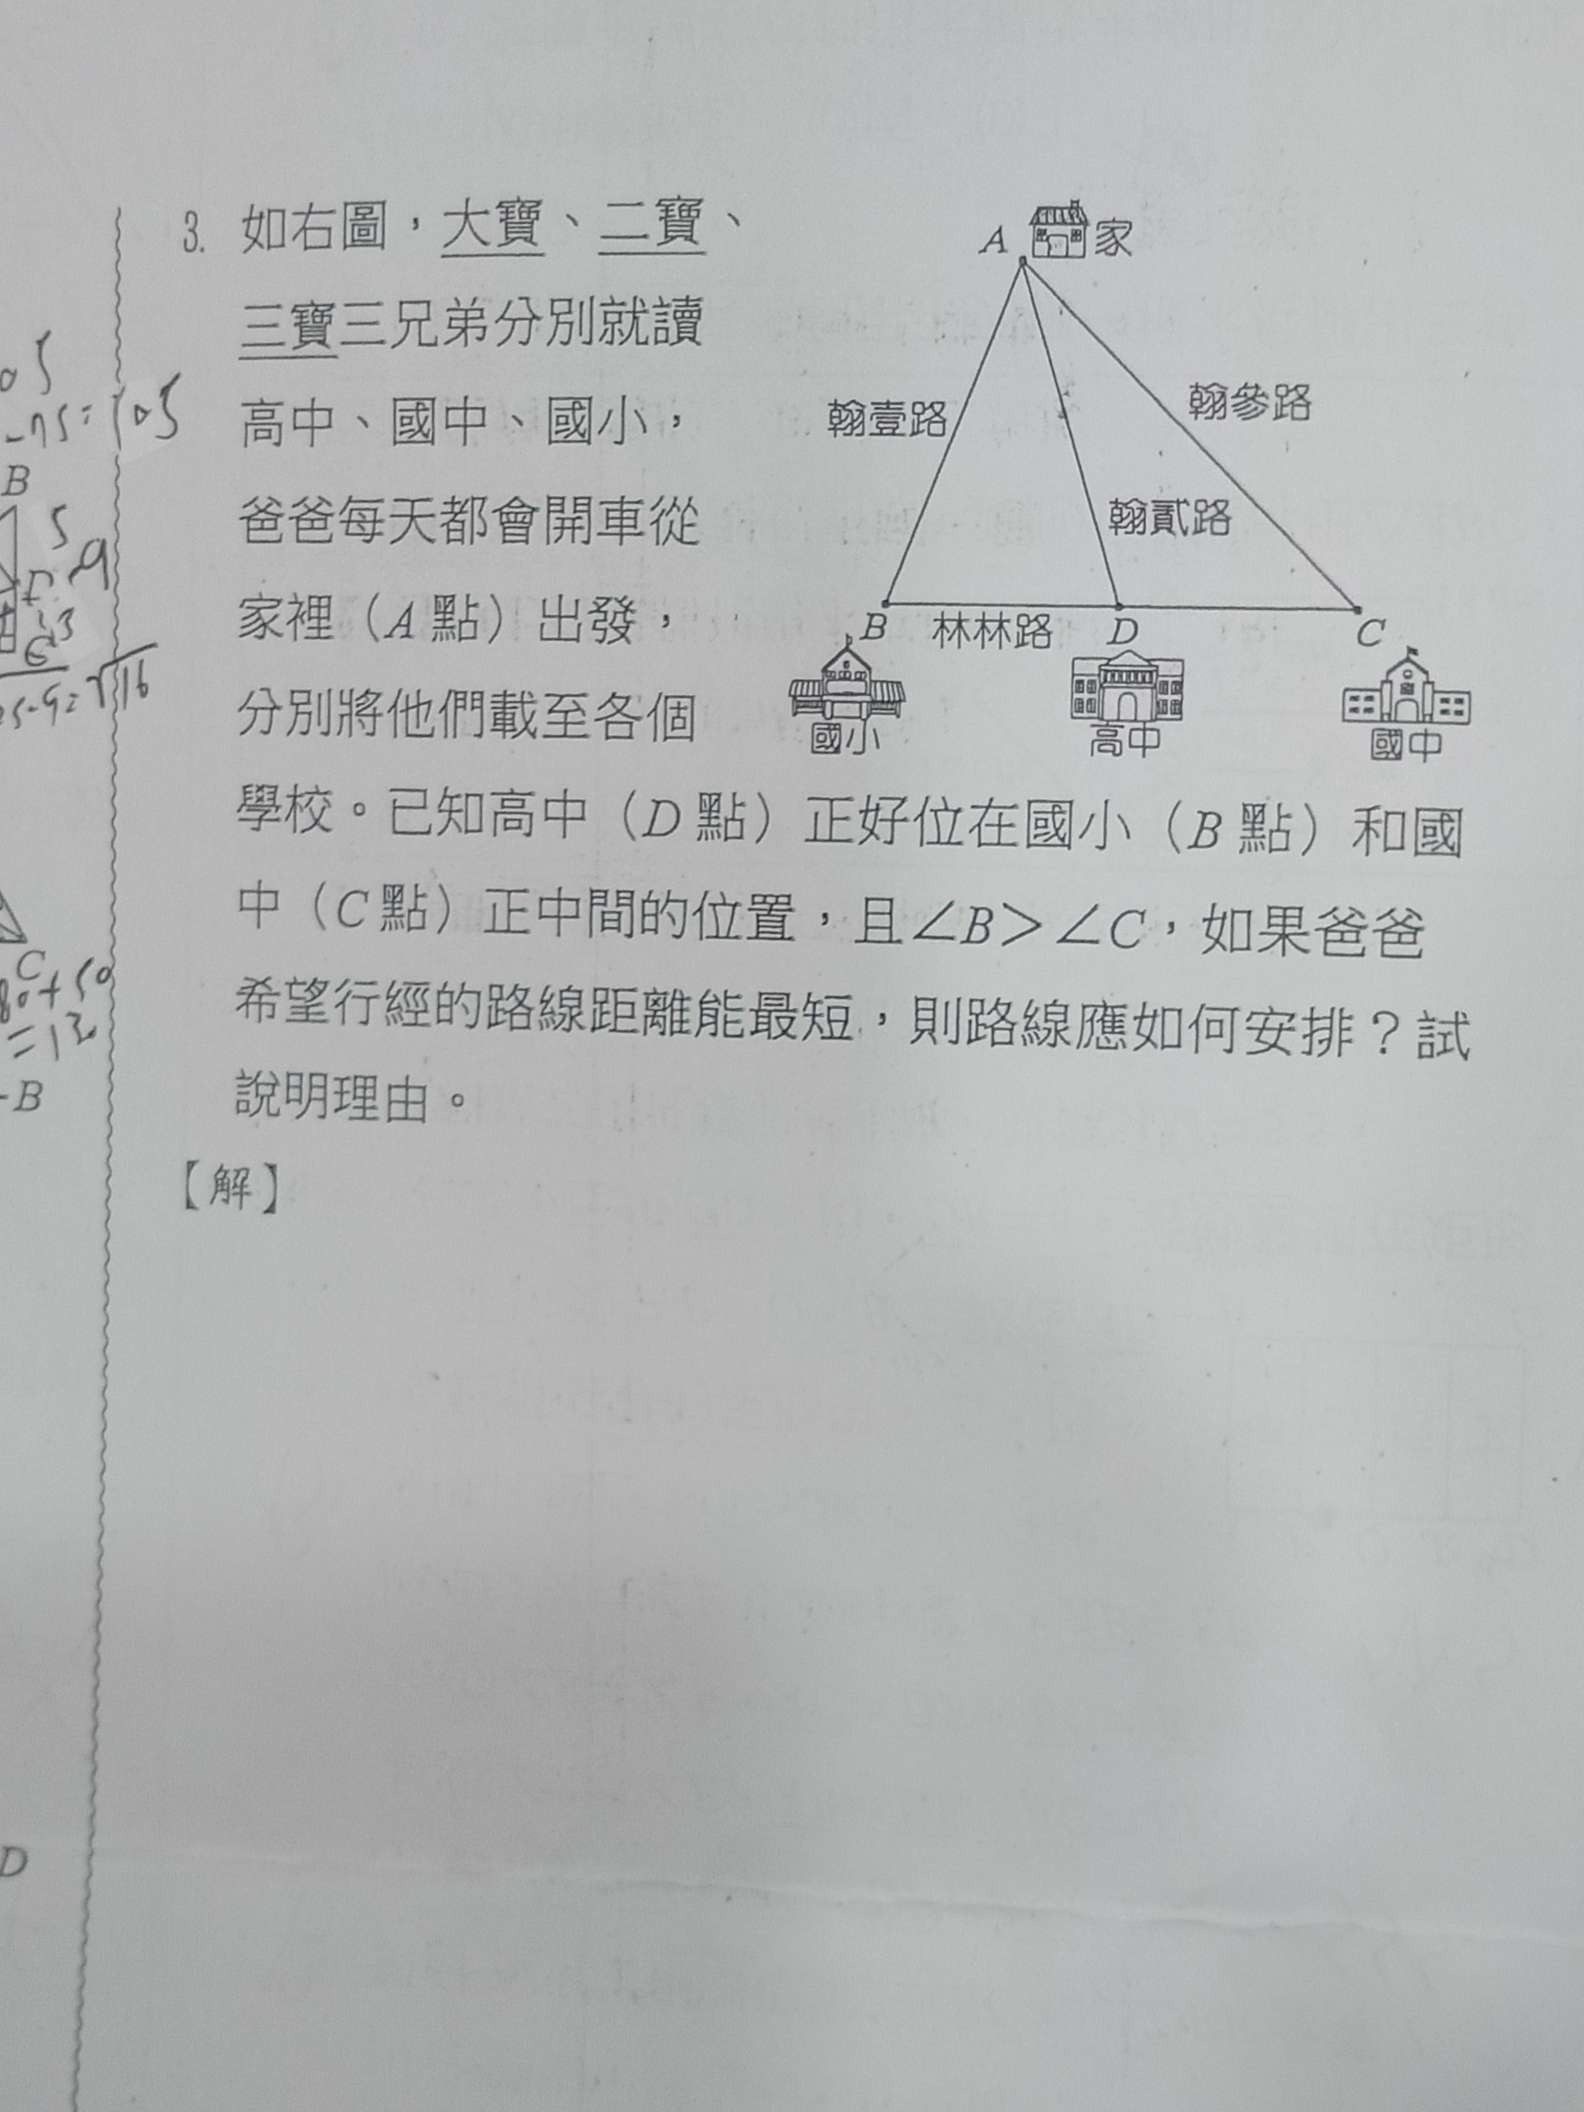 3. 如右圖，大寶、二寶、
三寶三兄弟分別就讀
高中、國中、國小，
爸爸每天都會開車從
家裡（A點）出發，
分別將他們載至各個
學校。已知高中（D點）正好位在國小（B點）和國
中（C點）正中間的位置，且∠B＞∠C，如果爸爸
希望行經的路線距離能最短，則路線應如何安排？試
說明理由。
【解】
A 家
翰壹路
翰參路
翰貳路
B 林林路 D C
國小 高中 國中
-75=105
B
5
C
=130
B
D